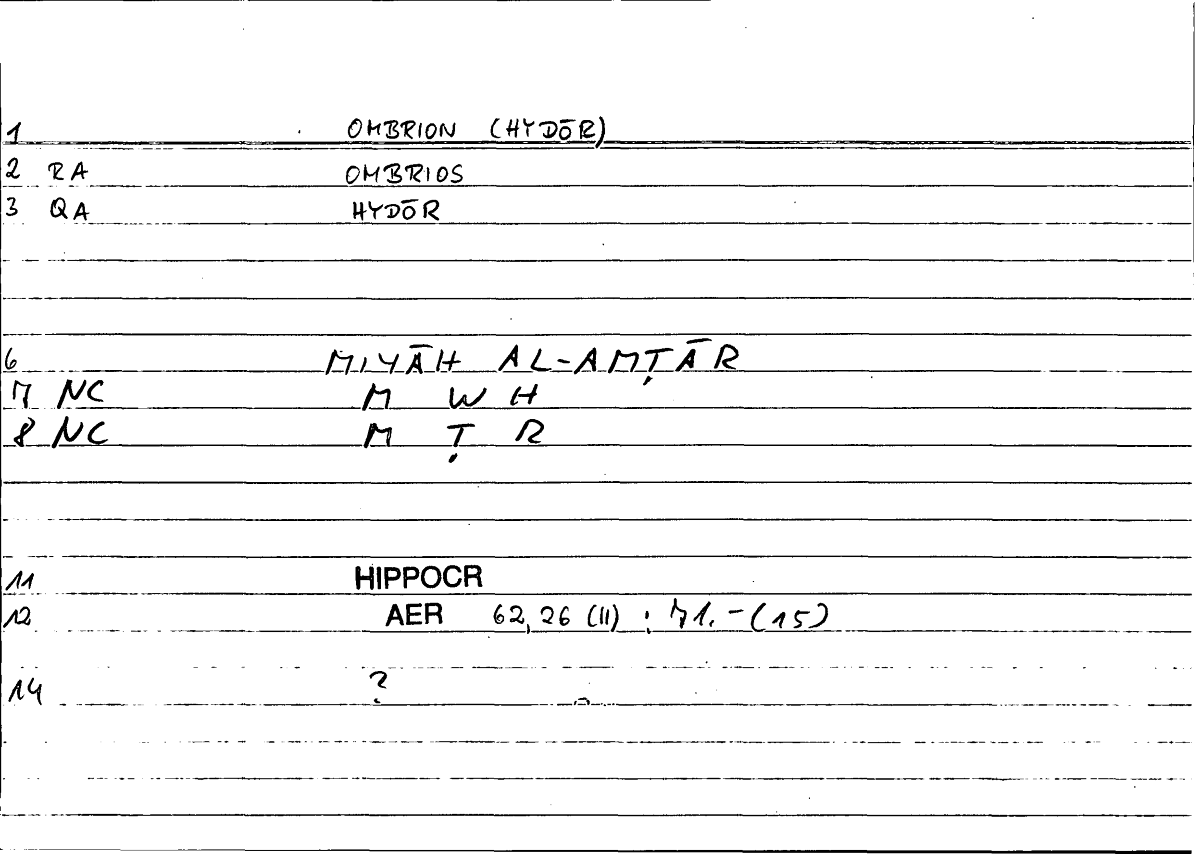 1 OMBRION (HYDŌR)
2 RA OMBRIOS
3 QA HYDŌR
6 MIYĀH AL-AMṬĀR
7 NC M W H
8 NC M Ṭ R
11 HIPPOCR
12 AER 62,26 (11) : 71.-(15)
14 ?